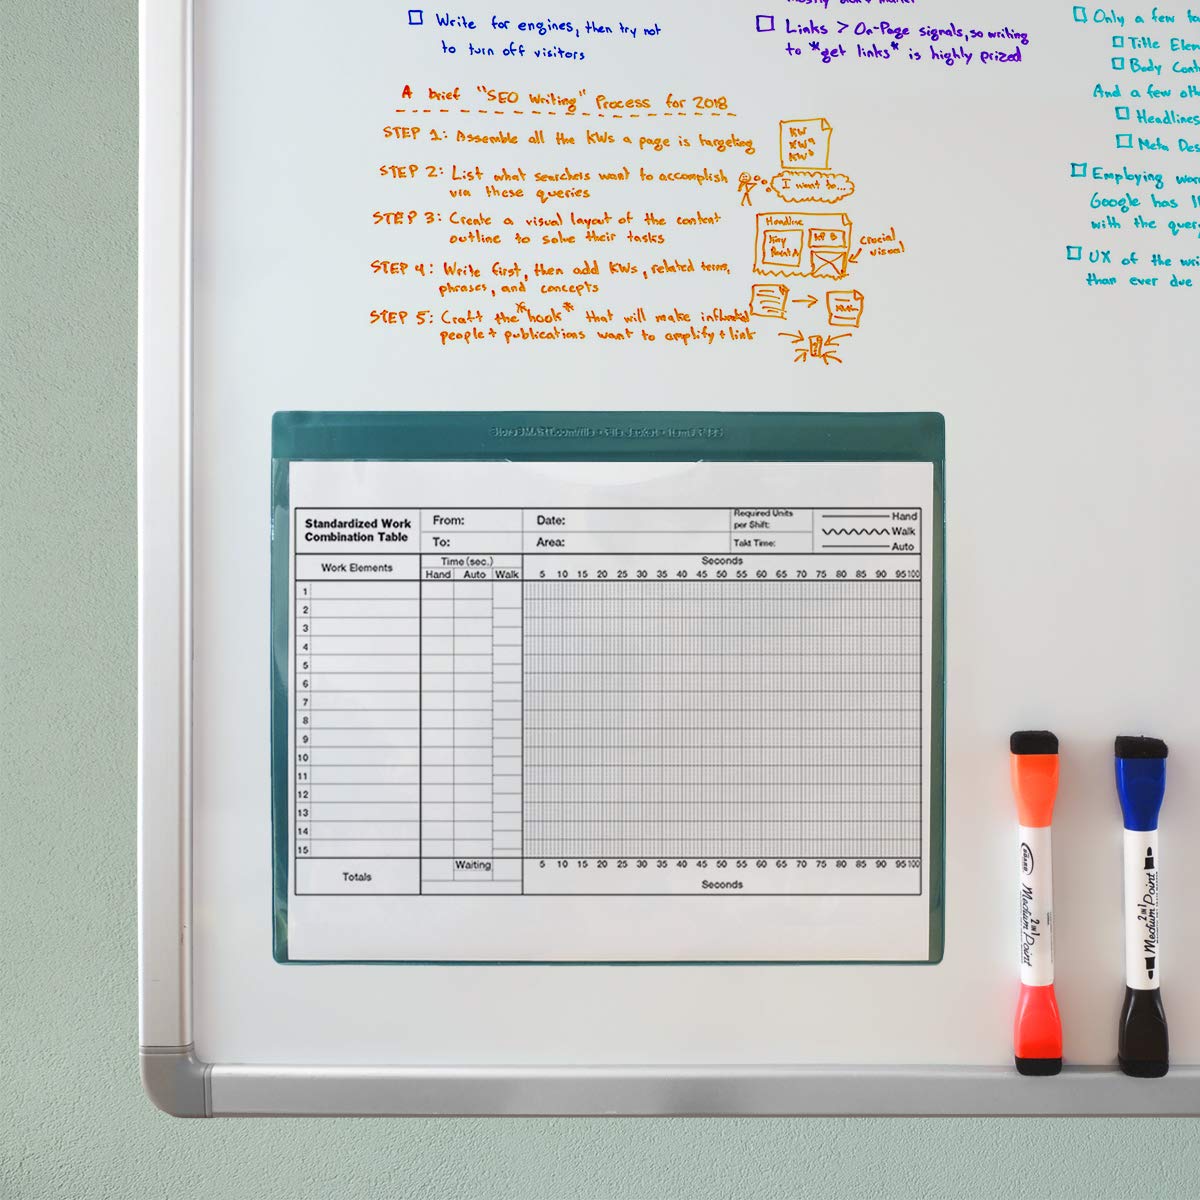 Write for engines, then try not
to turn off visitors
Links > On-Page signals, so writing
to *get links* is highly prized
Only a few
Title
Body
And a few
Headlines
Meta
Employing
Google has
with the
UX of the
than ever due
A brief "SEO Writing" Process for 2018
STEP 1: Assemble all the KWs a page is targeting
KW
KWa
KWb
STEP 2: List what searchers want to accomplish
via these queries
I want to...
STEP 3: Create a visual layout of the content
outline to solve their tasks
Headline
Crucial
visual
STEP 4: Write first, then add KWs, related terms,
phrases, and concepts
STEP 5: Craft the *hook* that will make influential
people + publications want to amplify + link
Standardized Work
Combination Table
From:
To:
Date:
Area:
Required Units
per Shift:
Takt Time:
Hand
Walk
Auto
Work Elements
Time (sec.)
Hand Auto Walk
Seconds
5 10 15 20 25 30 35 40 45 50 55 60 65 70 75 80 85 90 95 100
1
2
3
4
5
6
7
8
9
10
11
12
13
14
15
Totals
Waiting
5 10 15 20 25 30 35 40 45 50 55 60 65 70 75 80 85 90 95 100
Seconds
BOARD
2 IN 1
Medium Point
2 IN 1
Medium Point